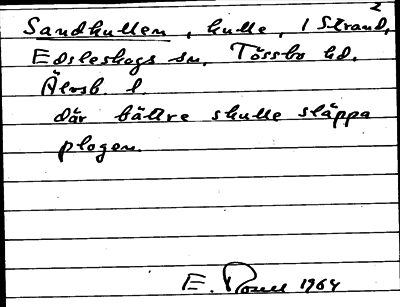 Sandkullen, kulle, 1 Strand,²
Edsleskogs sn, Tössbo hd.
Älvsb. l.
där bättre skulle släppa
plogen.
E. 1964